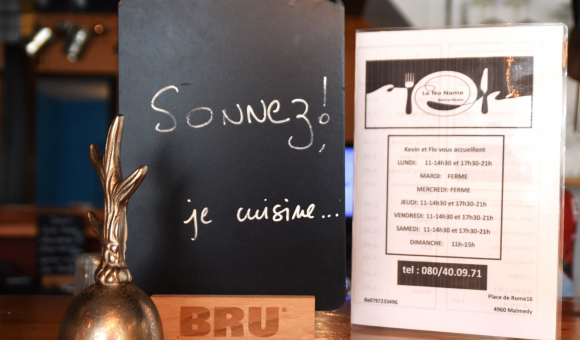 Sonnez!
je cuisine...
BRU®
Le No Name
Kevin et Flo vous accueillent
LUNDI: 11-14h30 et 17h30-21h
MARDI: FERME
MERCREDI: FERME
JEUDI: 11-14h30 et 17h30-21h
VENDREDI: 11-14h30 et 17h30-21h
SAMEDI: 11-14h30 et 17h30-21h
DIMANCHE: 11h-15h
tel : 080/40.09.71
Place de Rome16
Be0797223496
4960 Malmedy